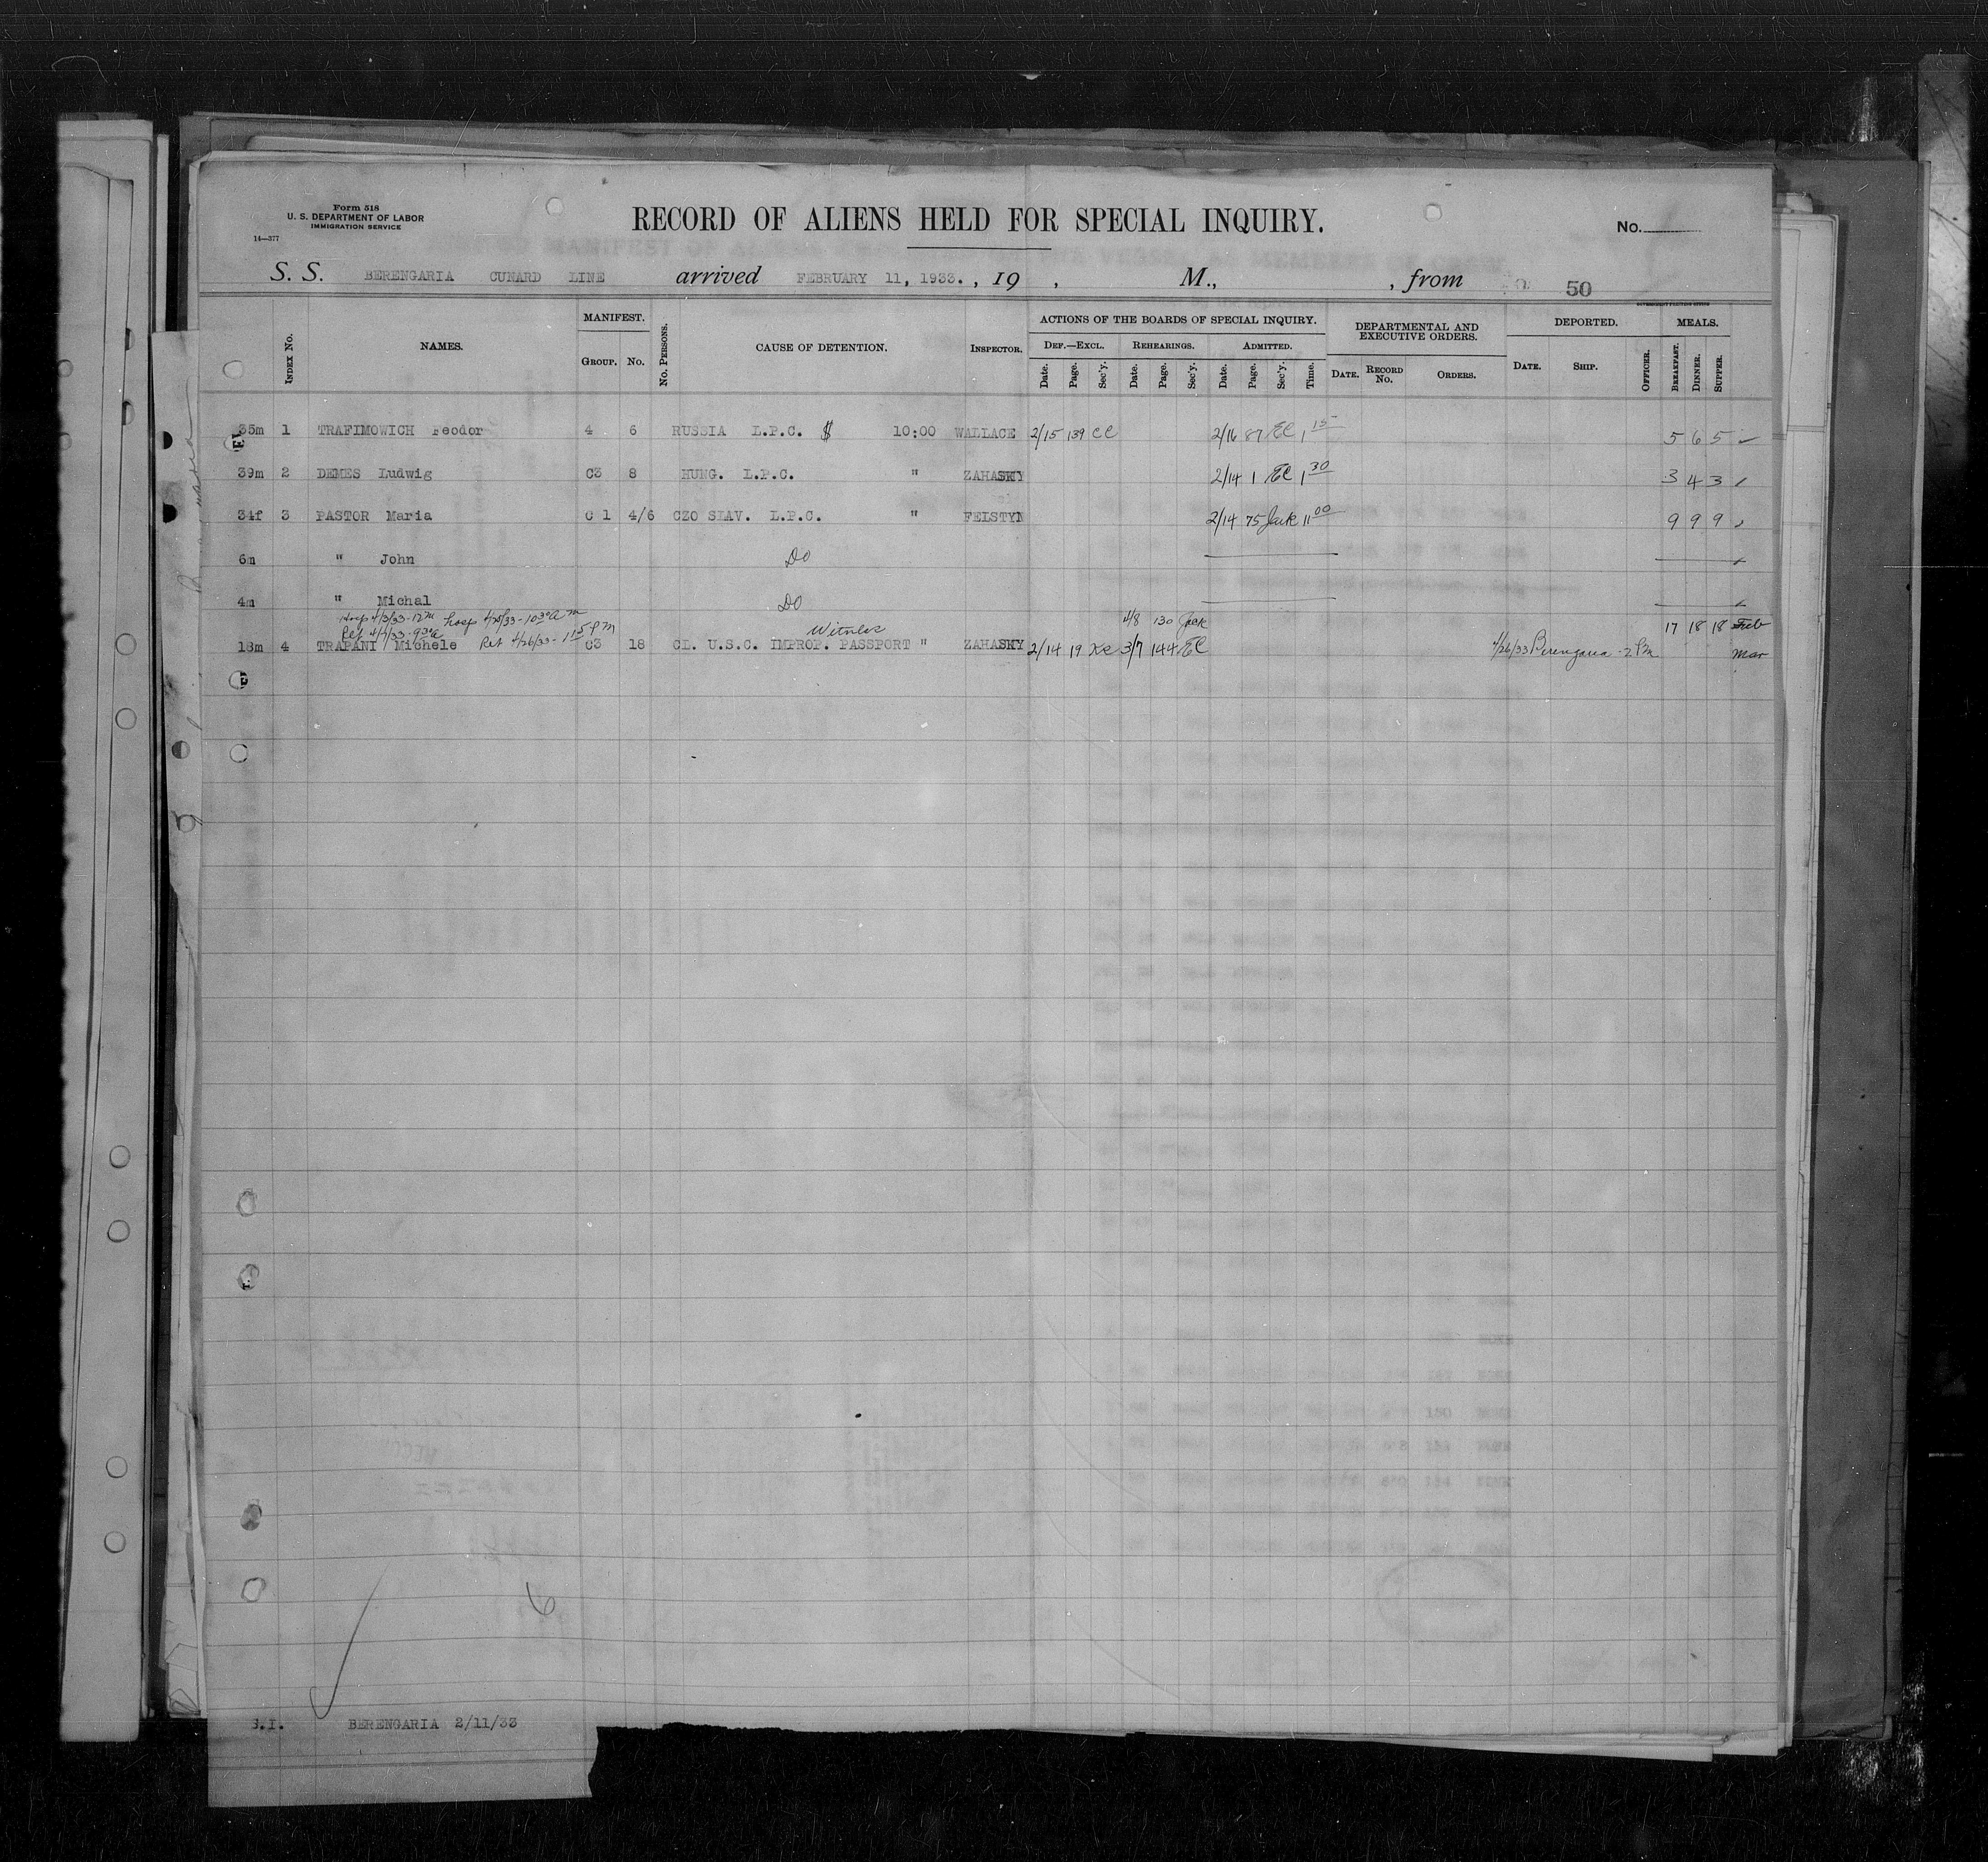 Form 518
U. S. DEPARTMENT OF LABOR
IMMIGRATION SERVICE
14—377
RECORD OF ALIENS HELD FOR SPECIAL INQUIRY.
No.
S. S. BERENGARIA CUNARD LINE arrived FEBRUARY 11, 1933. , 19 , M., , from 50
INDEX NO. NAMES. MANIFEST. GROUP. NO. NO. PERSONS. CAUSE OF DETENTION. INSPECTOR. ACTIONS OF THE BOARDS OF SPECIAL INQUIRY. DEPARTMENTAL AND EXECUTIVE ORDERS. DEPORTED. MEALS.
DEF.—EXCL. REHEARINGS. ADMITTED.
Date. Page. Sec'y. Date. Page. Sec'y. Date. Page. Sec'y. Time. DATE. RECORD No. ORDERS. DATE. SHIP. OFFICER. BREAKFAST. DINNER. SUPPER.
35m 1 TRAFIMOWICH Feodor 4 6 RUSSIA L.P.C. $ 10:00 WALLACE 2/15 139 CC 2/16 87 EC 1 15 5 6 5
39m 2 DEMES Ludwig C3 8 HUNG. L.P.C. " ZAHASKY 2/14 1 EC 1 30 3 4 3
34f 3 PASTOR Maria C 1 4/6 CZO SLAV. L.P.C. " FELSTYN 2/14 75 Jack 11 00 9 9 9
6m " John Do
4m " Michal Do
Hosp 4/3/33-12 m hosp 4/25/33-10 30 a m
Ret 4/4/33-9 30 a Ret 4/26/33-1 15 P M
Witness 4/8 130 Jack 17 18 18 Feb
18m 4 TRAPANI Michele C3 18 CL. U.S.C. IMPROP. PASSPORT " ZAHASKY 2/14 19 3/7 144 EC 4/26/33 Berengaria - 2 Pm Mar
6
S.I. BERENGARIA 2/11/33